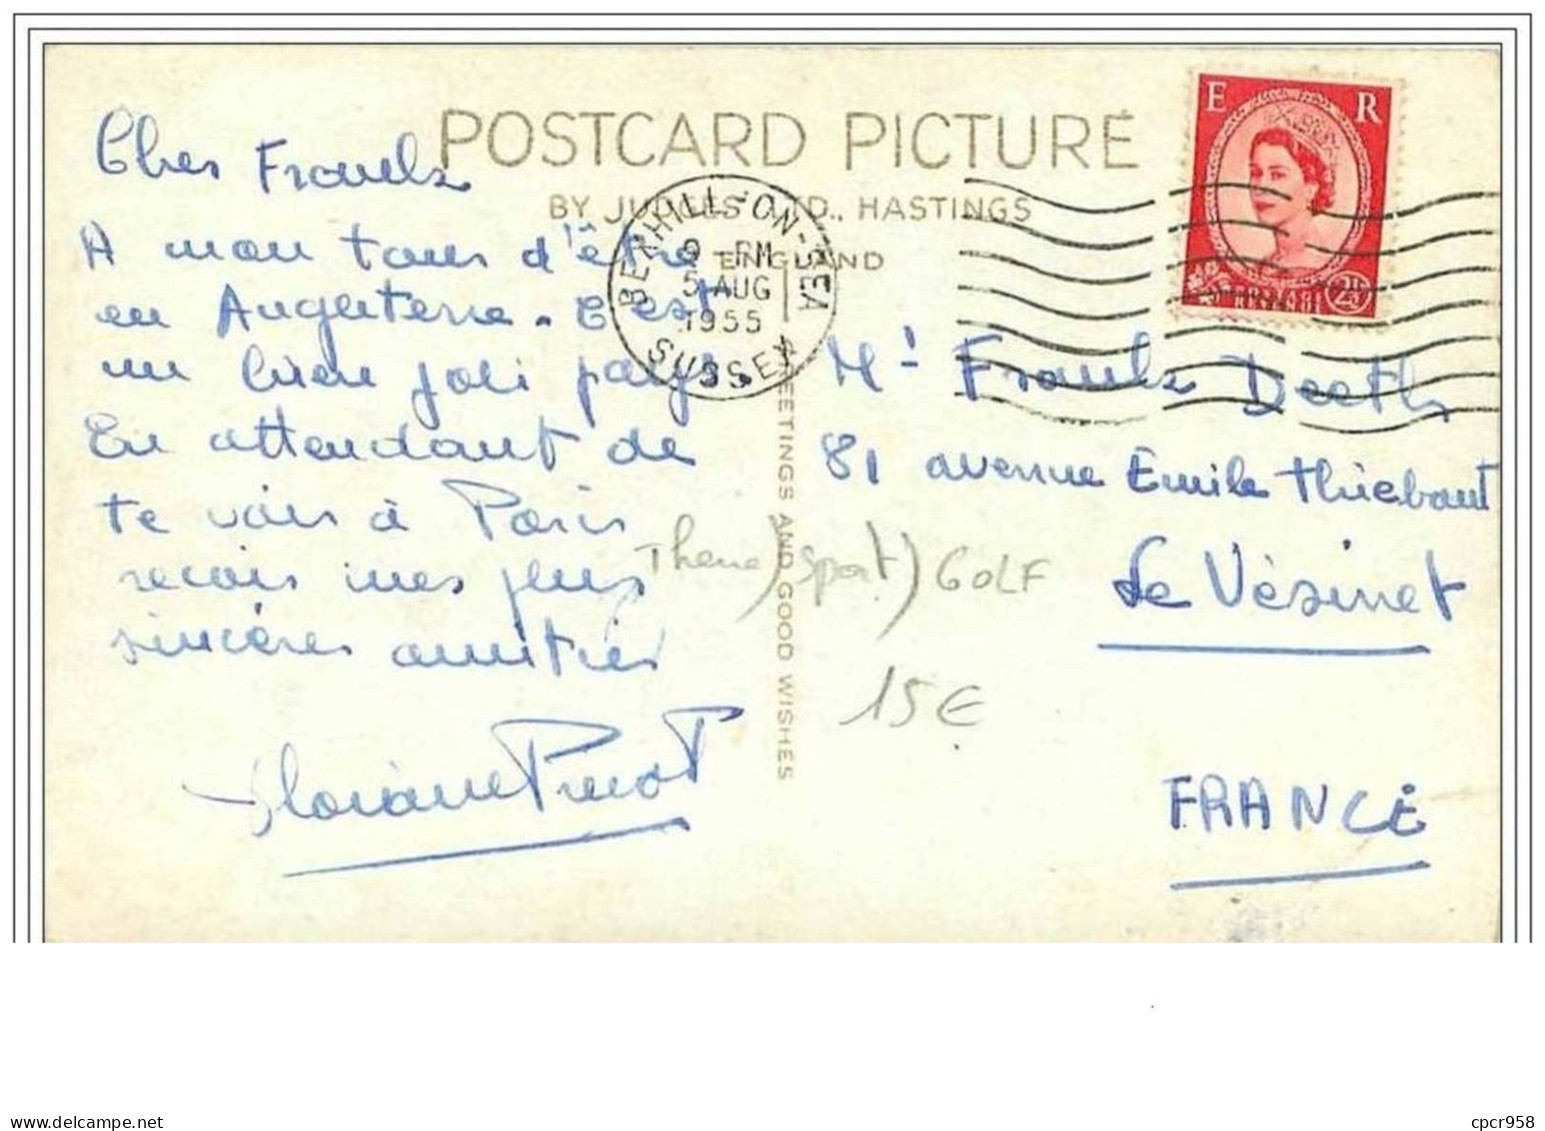 POSTCARD PICTURE
BY JUDGES LTD., HASTINGS
ENGLAND
E R
2½
BEXHILL-ON-SEA
9 PM
5 AUG
1955
SUSSEX
Cher Franck
A mon tour d'être
en Angleterre. C'est
un bien joli pays.
En attendant de
te voir à Paris
reçois mes plus
sincères amitiés
GREETINGS AND GOOD WISHES
Mr Franck
81 avenue Emile Thiebaut
Le Vésinet
FRANCE
Theme) Sport) GOLF
15€
www.delcampe.net
cpcr958